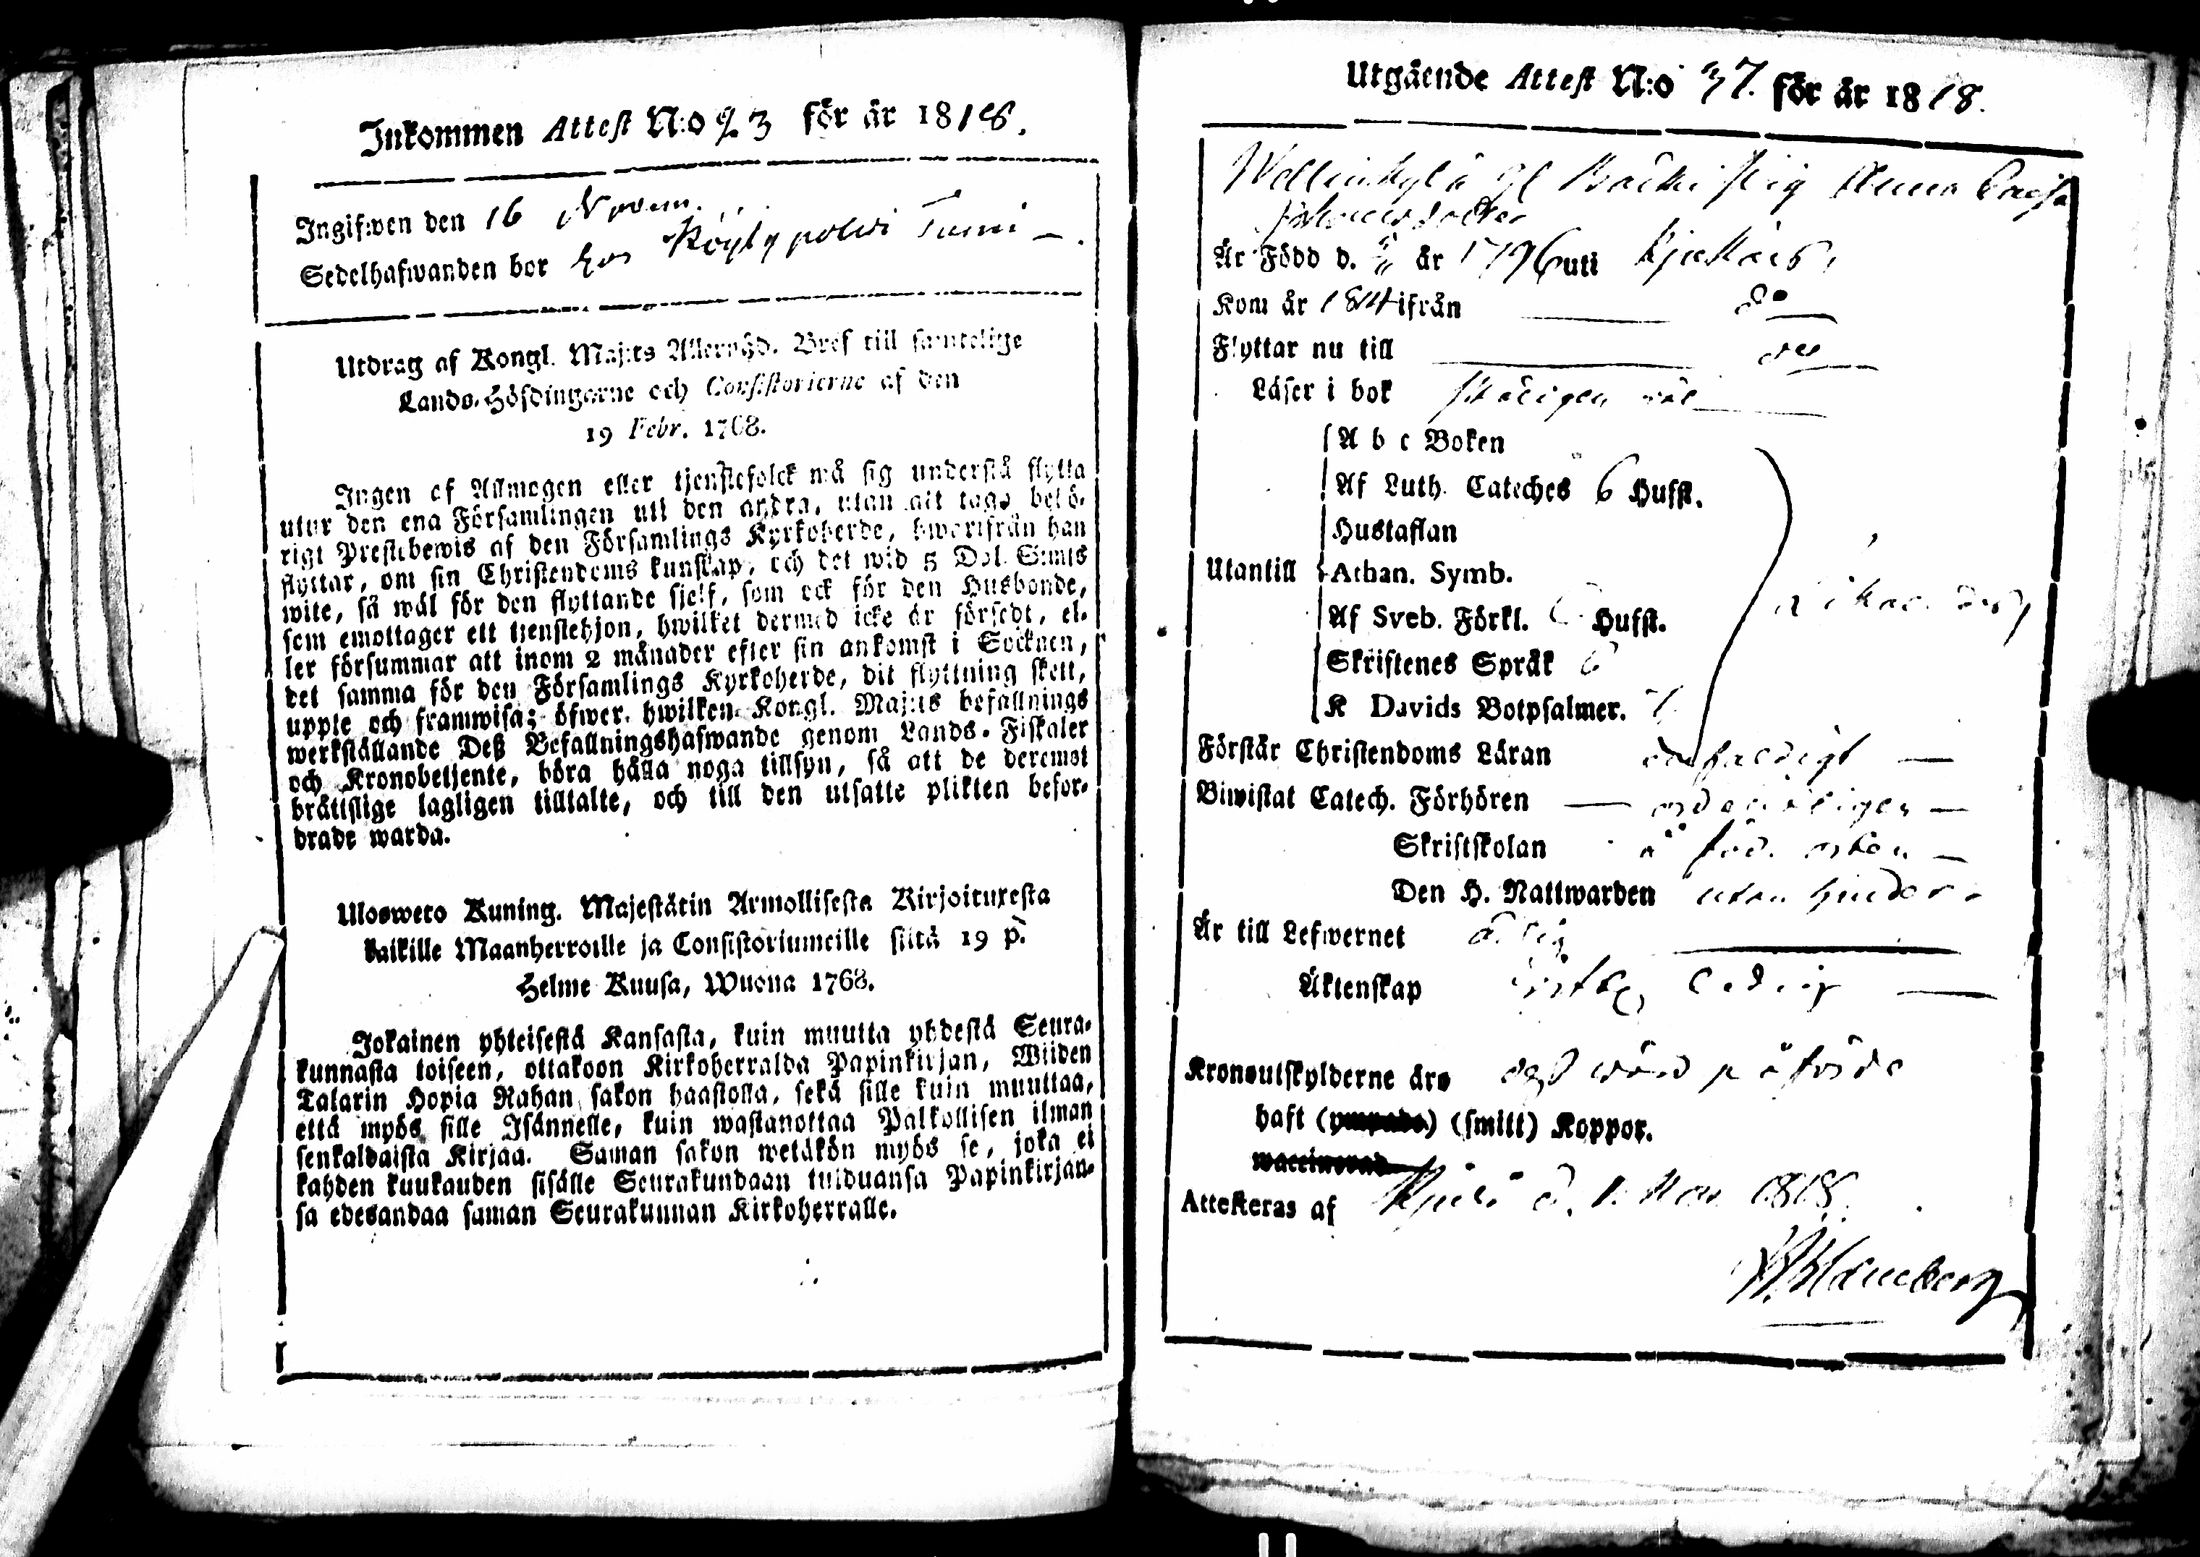 Inkommen Attest N:o 23 för år 1818.
Ingifwen den 16 Novem.
Sedelhafwanden bor hos Köylypolvi Tumi
Utdrag af Kongl. Maj:ts Allernåd. Bref till samtelige
Lands-Höfdingarne och Consistorierne af den
19 Febr. 1768.
Ingen af Allmogen eller tjenstefolck må sig understå flytta
utur den ena Församlingen uti den andra, utan att taga behö-
rigt Prestebewis af den Församlings Kyrkoherde, hwarifrån han
flyttar, om sin Christendoms kunskap, och det wid 5 Dal. S:mts
wite, så wäl för den flyttande sjelf, som ock för den Husbonde,
som emottager ett tjenstehjon, hwilket dermed icke är försedt, el-
ler försummar att inom 2 månader efter sin ankomst i Socknen,
det samma för den Församlings Kyrkoherde, dit flyttning skett,
uppte och framwisa; öfwer hwilken Kongl. Maj:ts befallnings
werkställande Deß Befallningshafwande genom Lands-Fiskaler
och Kronobetjente, böra hålla noga tillsyn, så att de deremot
bråttslige lagligen tilltalte, och till den utsatte plikten befor-
drade warda.
Ulosweto Kuning. Majestätin Armollisesta Kirjoituxesta
kaikille Maanherroille ja Consistoriumeille siitä 19 p.
Helme Kuusa, Wuona 1768.
Jokainen yhteisestä Kansasta, kuin muutta yhdestä Seura-
kunnasta toiseen, ottakoon Kirkoherralda Papinkirjan, Wiiden
Talarin Hopia Rahan sakon haastolla, sekä sille kuin muuttaa,
että myös sille Isännelle, kuin wastanottaa Palkollisen ilman
senkaldaista Kirjaa. Saman sakon wetäkön myös se, joka ei
kahden kuukauden sisälle Seurakundaan tulduansa Papinkirjan-
sa edesandaa saman Seurakunnan Kirkoherralle.
Utgående Attest N:o 37. för år 1818.
Anna Caisa
Är Född d. år 1796 uti
Kom år 1814 ifrån do
Flyttar nu till
Läser i bok skäligen väl
A b c Boken
Af Luth. Cateches 6 Hufst.
Hustaflan
Utantill Athan. Symb.
Af Sveb. Förkl. 6 Hufst.
Skriftenes Språk 6
K Davids Botpsalmer. 7
Förstår Christendoms Läran enfaldigt
Biwistat Catech. Förhören ordenteligen
Skriftskolan å föd. orten
Den H. Nattwarden utan hinder
Är till Lefwernet ärlig
Äktenskap ledig
Kronoutskylderne äro
haft (ympade) (smitt) Koppor.
waccinerad
Attesteras af d. 1. Nov 1818.